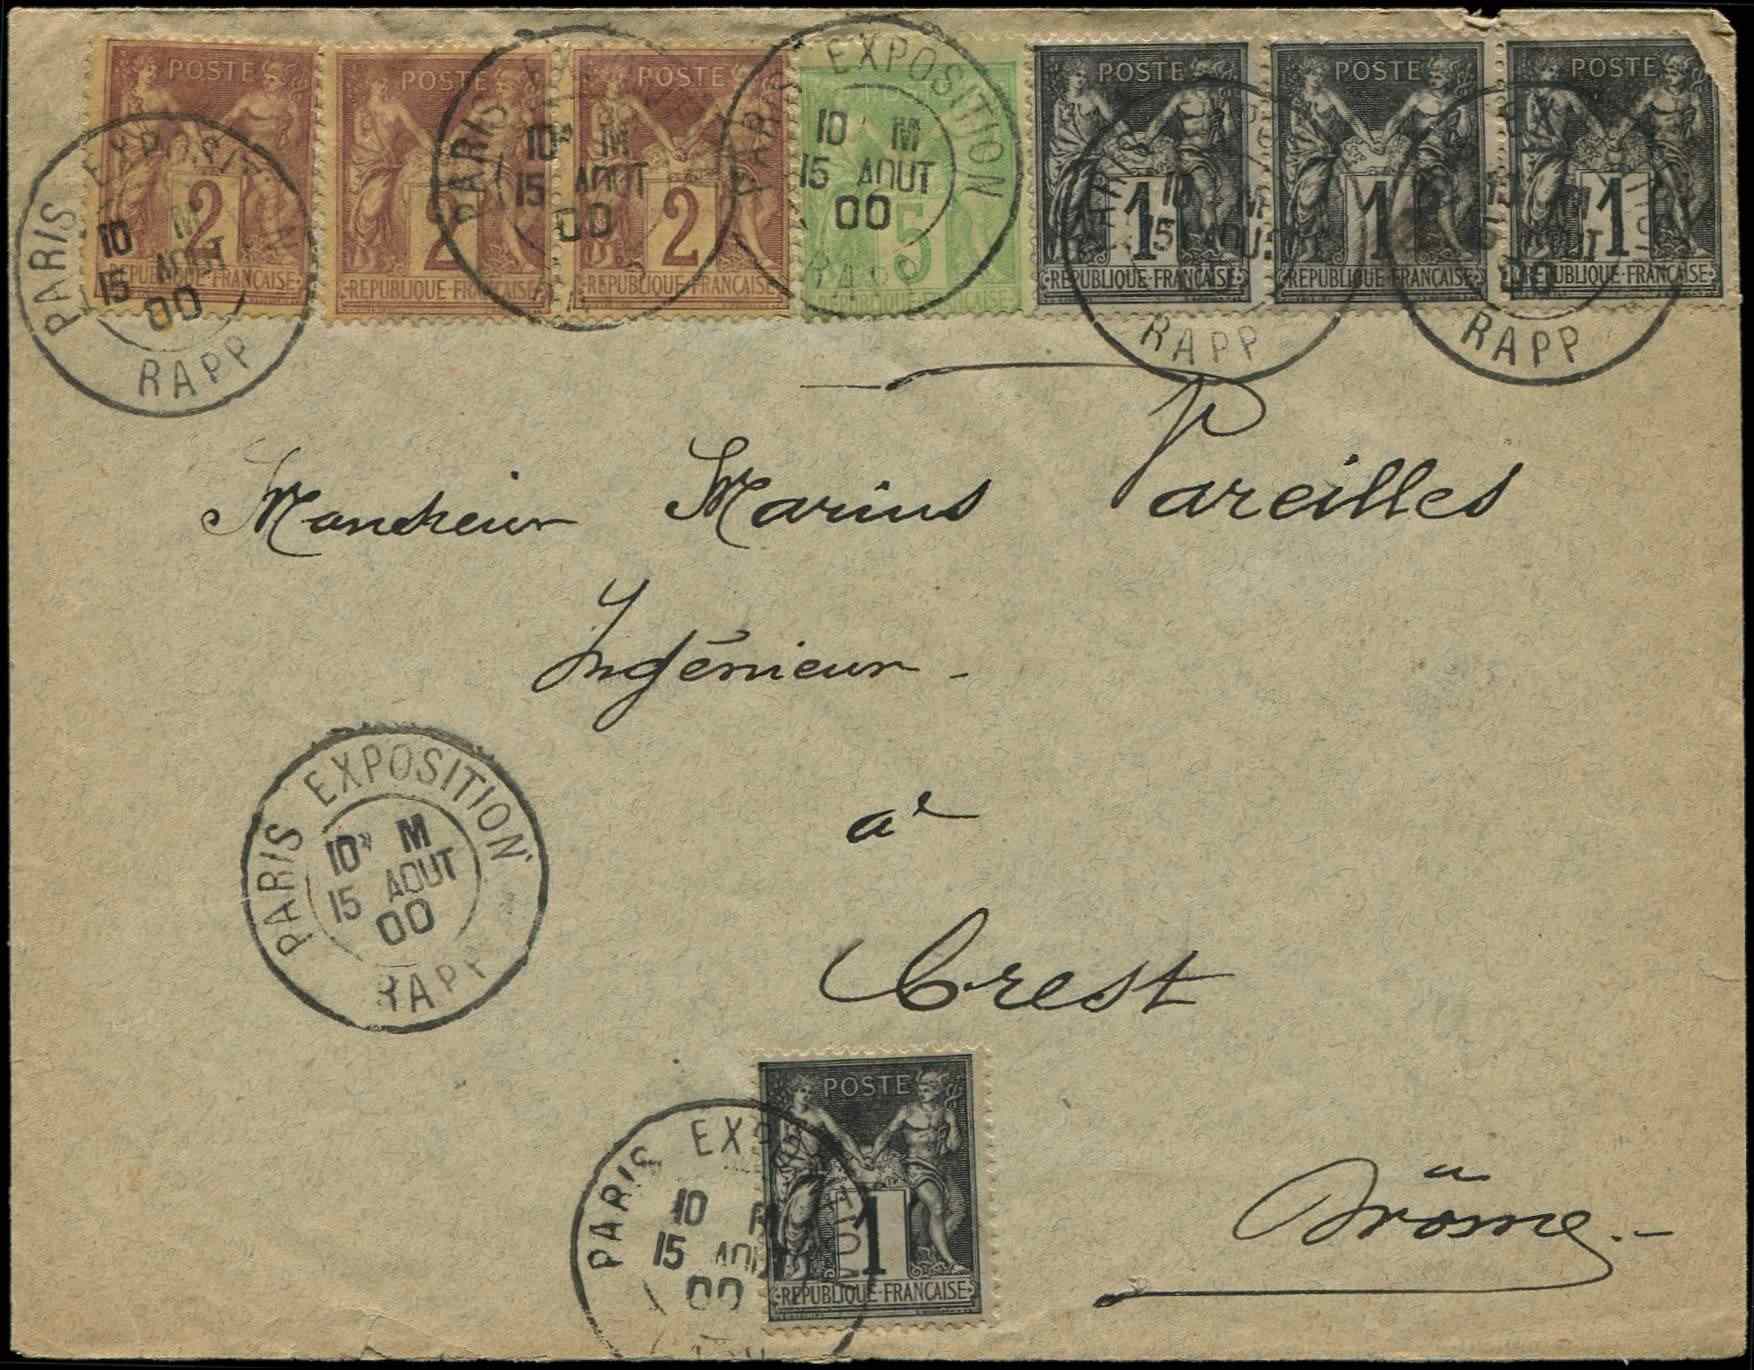 POSTE POSTE POSTE POSTE POSTE POSTE
2 2 2 5 1 1 1
REPUBLIQUE FRANÇAISE REPUBLIQUE FRANÇAISE REPUBLIQUE FRANÇAISE REPUBLIQUE FRANÇAISE REPUBLIQUE FRANÇAISE REPUBLIQUE FRANÇAISE REPUBLIQUE FRANÇAISE
PARIS EXPOSITION
10 M
15 AOUT
00
RAPP
PARIS
10 M
15 AOUT
00
PARIS EXPOSITION
10 M
15 AOUT
00
RAPP
RAPP
RAPP
Marius Pareilles
Ingénieur -
à
Crest
Drôme. -
PARIS EXPOSITION
10 M
15 AOUT
00
RAPP
POSTE
1
REPUBLIQUE FRANÇAISE
PARIS
10
15 AOUT
00